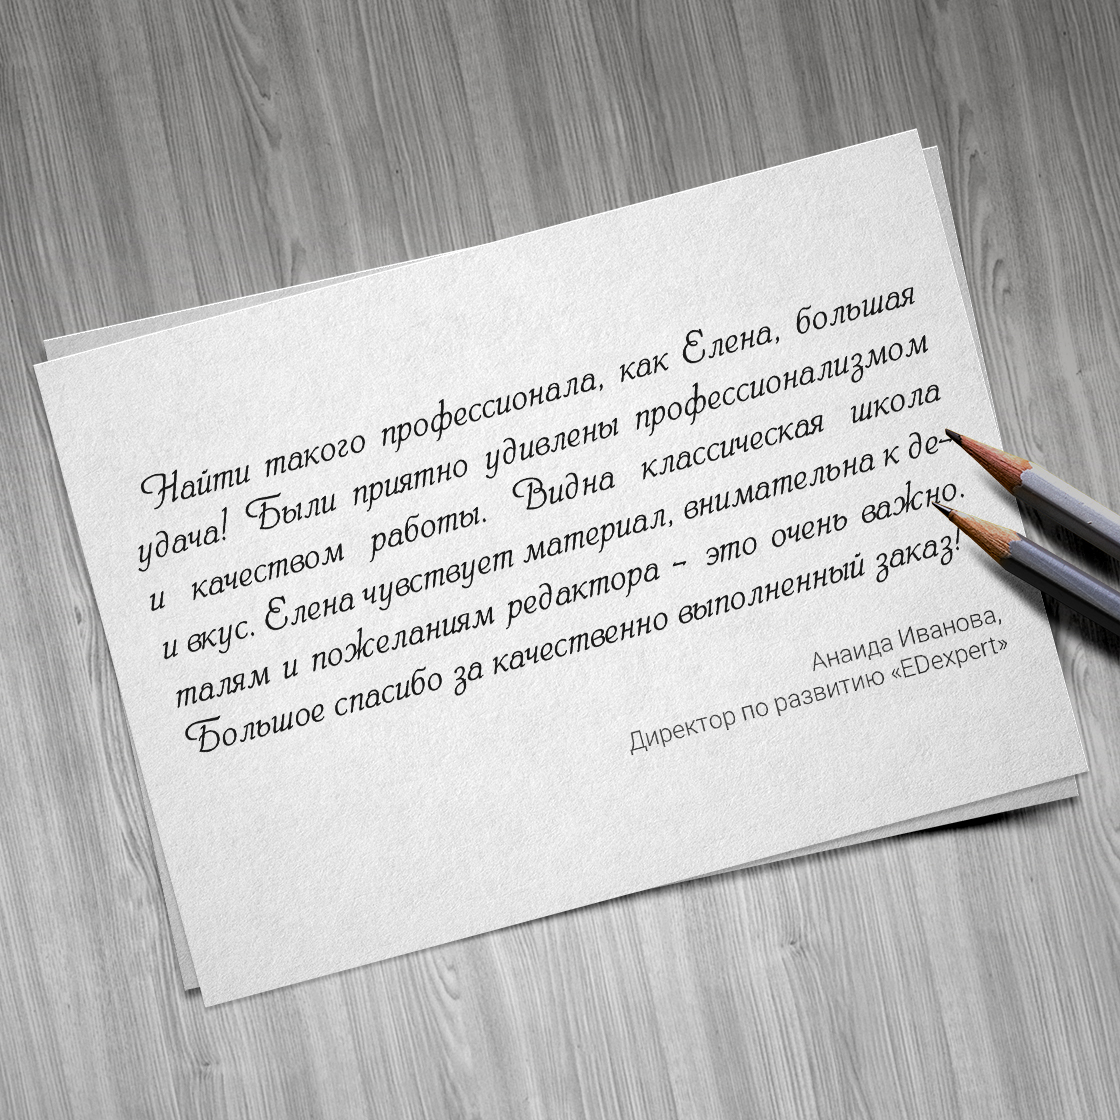 Найти такого профессионала, как Елена, большая
удача! Были приятно удивлены профессионализмом
и качеством работы. Видна классическая школа
и вкус. Елена чувствует материал, внимательна к де-
талям и пожеланиям редактора - это очень важно.
Большое спасибо за качественно выполненный заказ!
Анаида Иванова,
Директор по развитию «EDexpert»